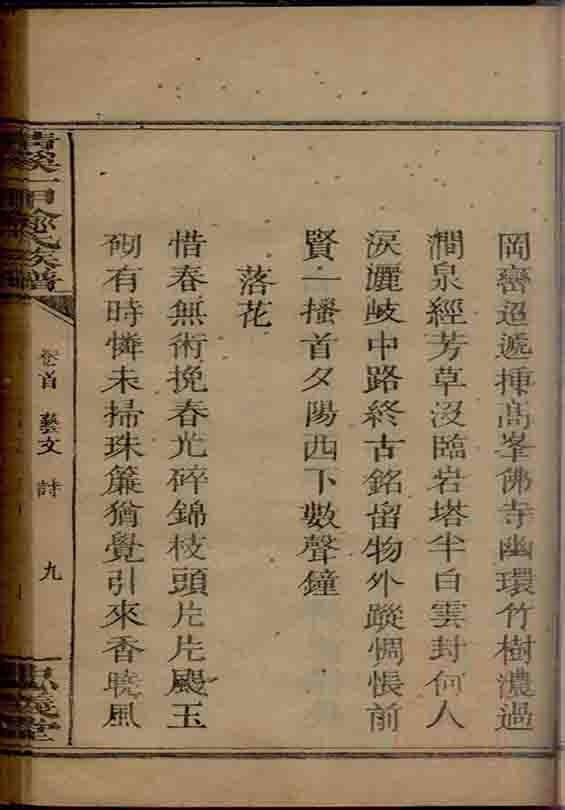 岡巒迢遞揷髙峯佛寺幽環竹樹濃過
澗泉經芳草沒臨岩塔半白雲封何人
淚灑岐中路終古銘留物外蹤惆悵前
賢一搔首夕陽西下數聲鐘
落花
惜春無術挽春光碎錦枝頭片片颺玉
砌有時憐未掃珠簾猶覺引來香曉風
一甲
氏族譜
卷首 藝文 詩 九
義堂